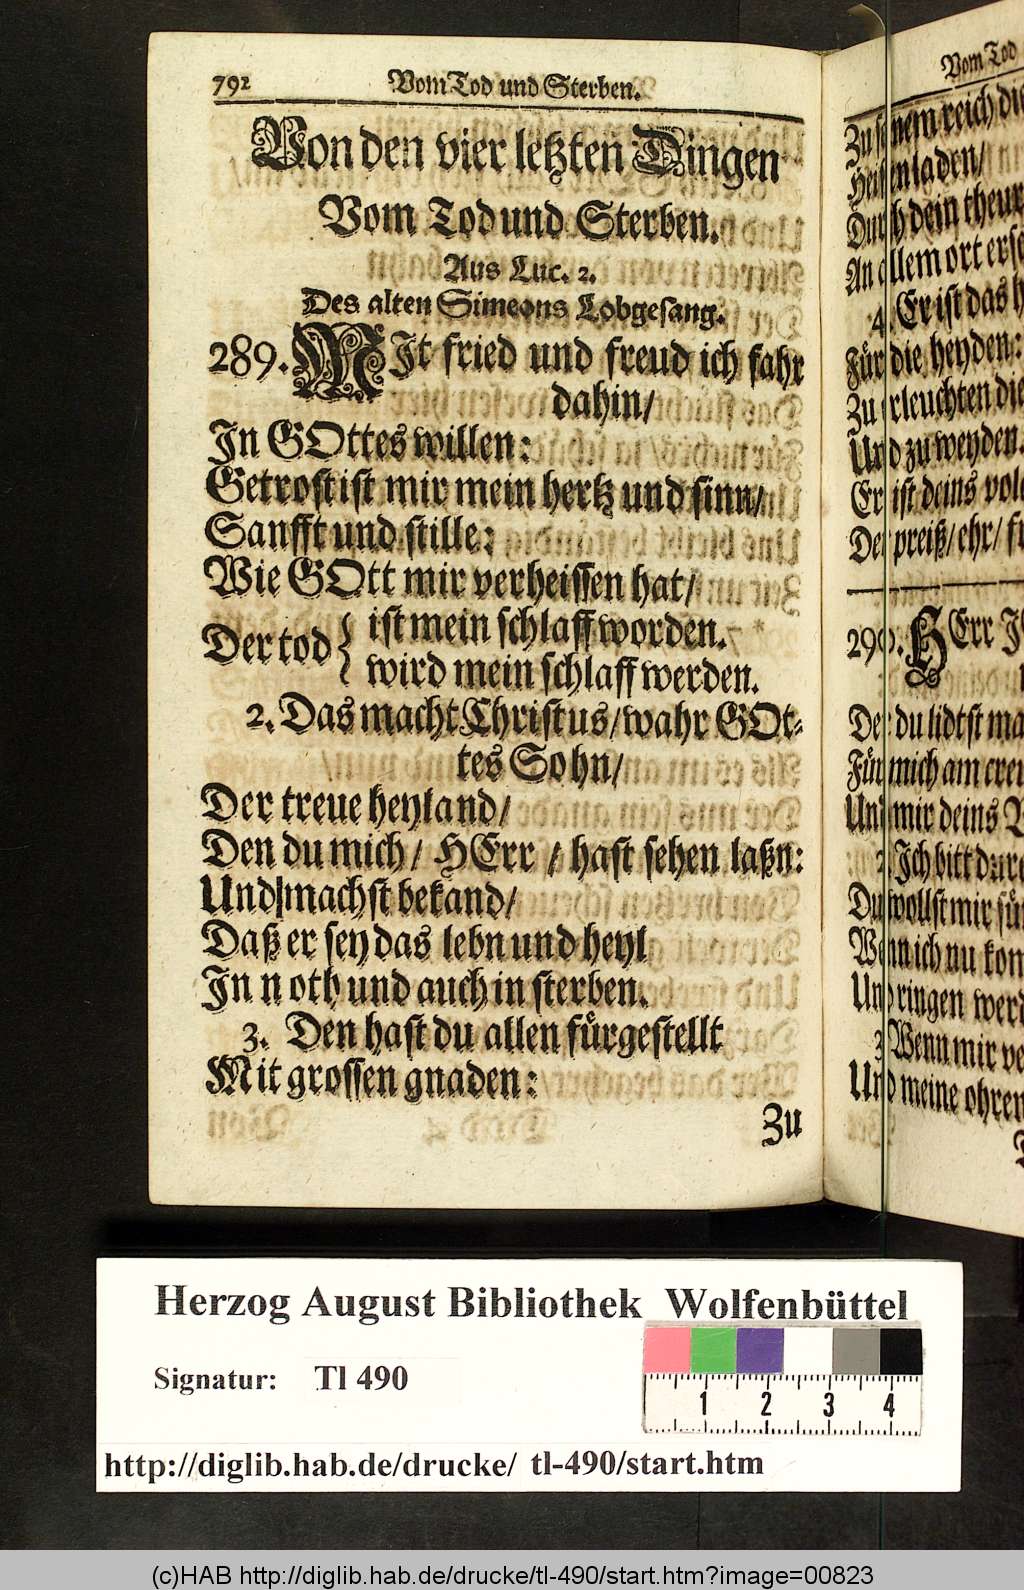 792 Vom Tod und Sterben.
Von den vier letzten Dingen
Vom Tod und Sterben.
Aus Luc. 2.
Des alten Simeons Lobgesang.
289. MIt fried und freud ich fahr
dahin/
In GOttes willen:
Getrost ist mir mein hertz und sinn/
Sanfft und stille:
Wie GOtt mir verheissen hat/
Der tod { ist mein schlaff worden.
wird mein schlaff werden.
2. Das macht Christus/ wahr GOt-
tes Sohn/
Der treue heyland/
Den du mich/ HErr / hast sehen laßn:
Und machst bekand/
Daß er sey das lebn und heyl
In noth und auch in sterben.
3. Den hast du allen fürgestellt
Mit grossen gnaden:
Zu
Vom Tod
Zu seinem reich die
Heissen laden/
Durch dein theur
An allem ort ersc
4. Er ist das h
Für die heyden:
Zu erleuchten die
Und zu weyden.
Er ist deins volc
Der preiß/ ehr/ fr
290. HErr J
Der du lidtst ma
Für mich am creu
Und mir deins V
2. Ich bitt durc
Du wollst mir sün
Wenn ich nu kom
Und ringen werd
3. Wenn mir ve
Und meine ohren
Herzog August Bibliothek Wolfenbüttel
Signatur: Tl 490
1 2 3 4
http://diglib.hab.de/drucke/ tl-490/start.htm
(c)HAB http://diglib.hab.de/drucke/tl-490/start.htm?image=00823